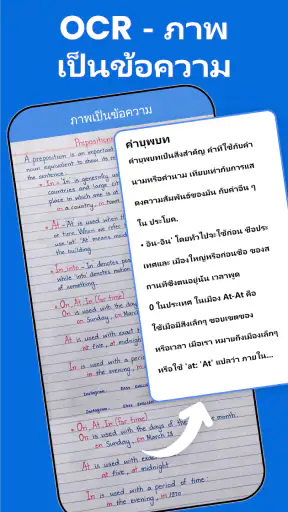 OCR - ภาพ
เป็นข้อความ
ภาพเป็นข้อความ
Prepositions
A preposition is an important
noun equivalent to show its re
the sentence.
• In - In is generally us
countries and large cit
place in which one is at
in a country, in town
• At - At is used when th
or time. When we refer
use 'at'. 'At' means insid
the building.
• In, into - In denotes plac
while 'into' denotes motion
of something.
• On, At, In (for time)
On is used with the day
on Sunday, on March
At is used with exact t
at five, at midnight
In is used with a perio
in the evening, in
• On, At, In (for time)
On is used with the days of the month.
on Sunday, on March 18
At is used with exact
at five, at midnight
In is used with a period of time:
in the evening, in 1970
คำบุพบท
คำบุพบทเป็นสิ่งสำคัญ คำที่ใช้กับคำ
นามหรือคำนาม เทียบเท่ากับการแส
ดงความสัมพันธ์ของมัน กับคำอื่น ๆ
ใน ประโยค.
• อิน-อิน' โดยทั่วไปจะใช้ก่อน ชื่อประ
เทศและ เมืองใหญ่หรือก่อนชื่อ ของส
ถานที่ซึ่งตนอยู่นั้น เวลาพูด
0 ในประเทศ ในเมือง At-At คือ
ใช้เมื่อมีสิ่งเล็กๆ ขอบเขตของ
หรือเวลา เมื่อเรา หมายถึงเมืองเล็กๆ
หรือใช้ 'at: 'At' แปลว่า ภายใน...